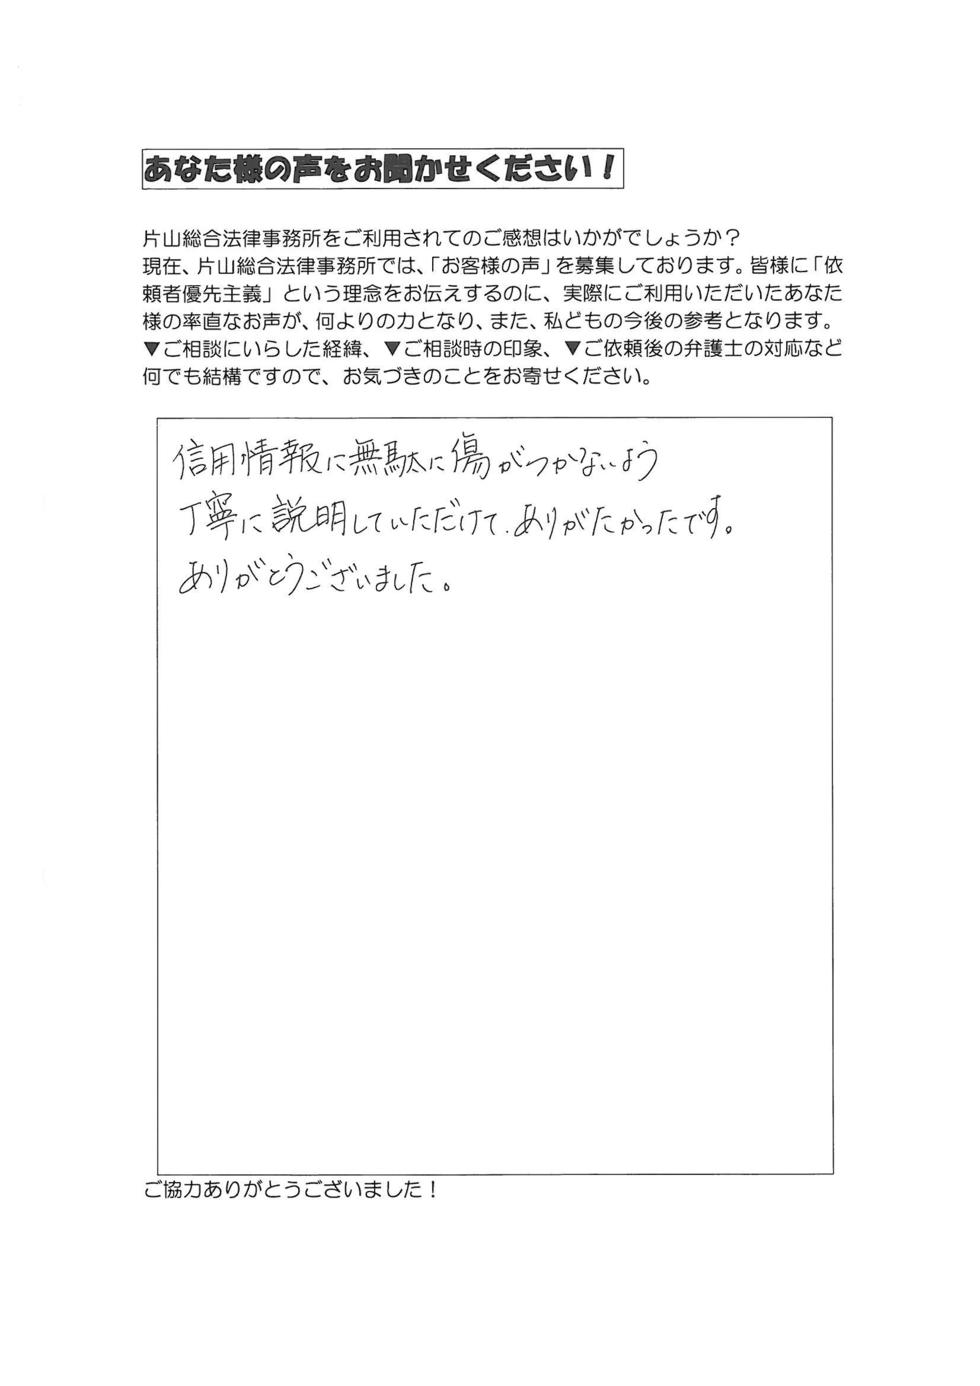 あなた様の声をお聞かせください！
片山総合法律事務所をご利用されてのご感想はいかがでしょうか？
現在、片山総合法律事務所では、「お客様の声」を募集しております。皆様に「依
頼者優先主義」という理念をお伝えするのに、実際にご利用いただいたあなた
様の率直なお声が、何よりの力となり、また、私どもの今後の参考となります。
▼ご相談にいらした経緯、▼ご相談時の印象、▼ご依頼後の弁護士の対応など
何でも結構ですので、お気づきのことをお寄せください。
信用情報に無駄に傷がつかないよう
丁寧に説明していただけて、ありがたかったです。
ありがとうございました。
ご協力ありがとうございました！